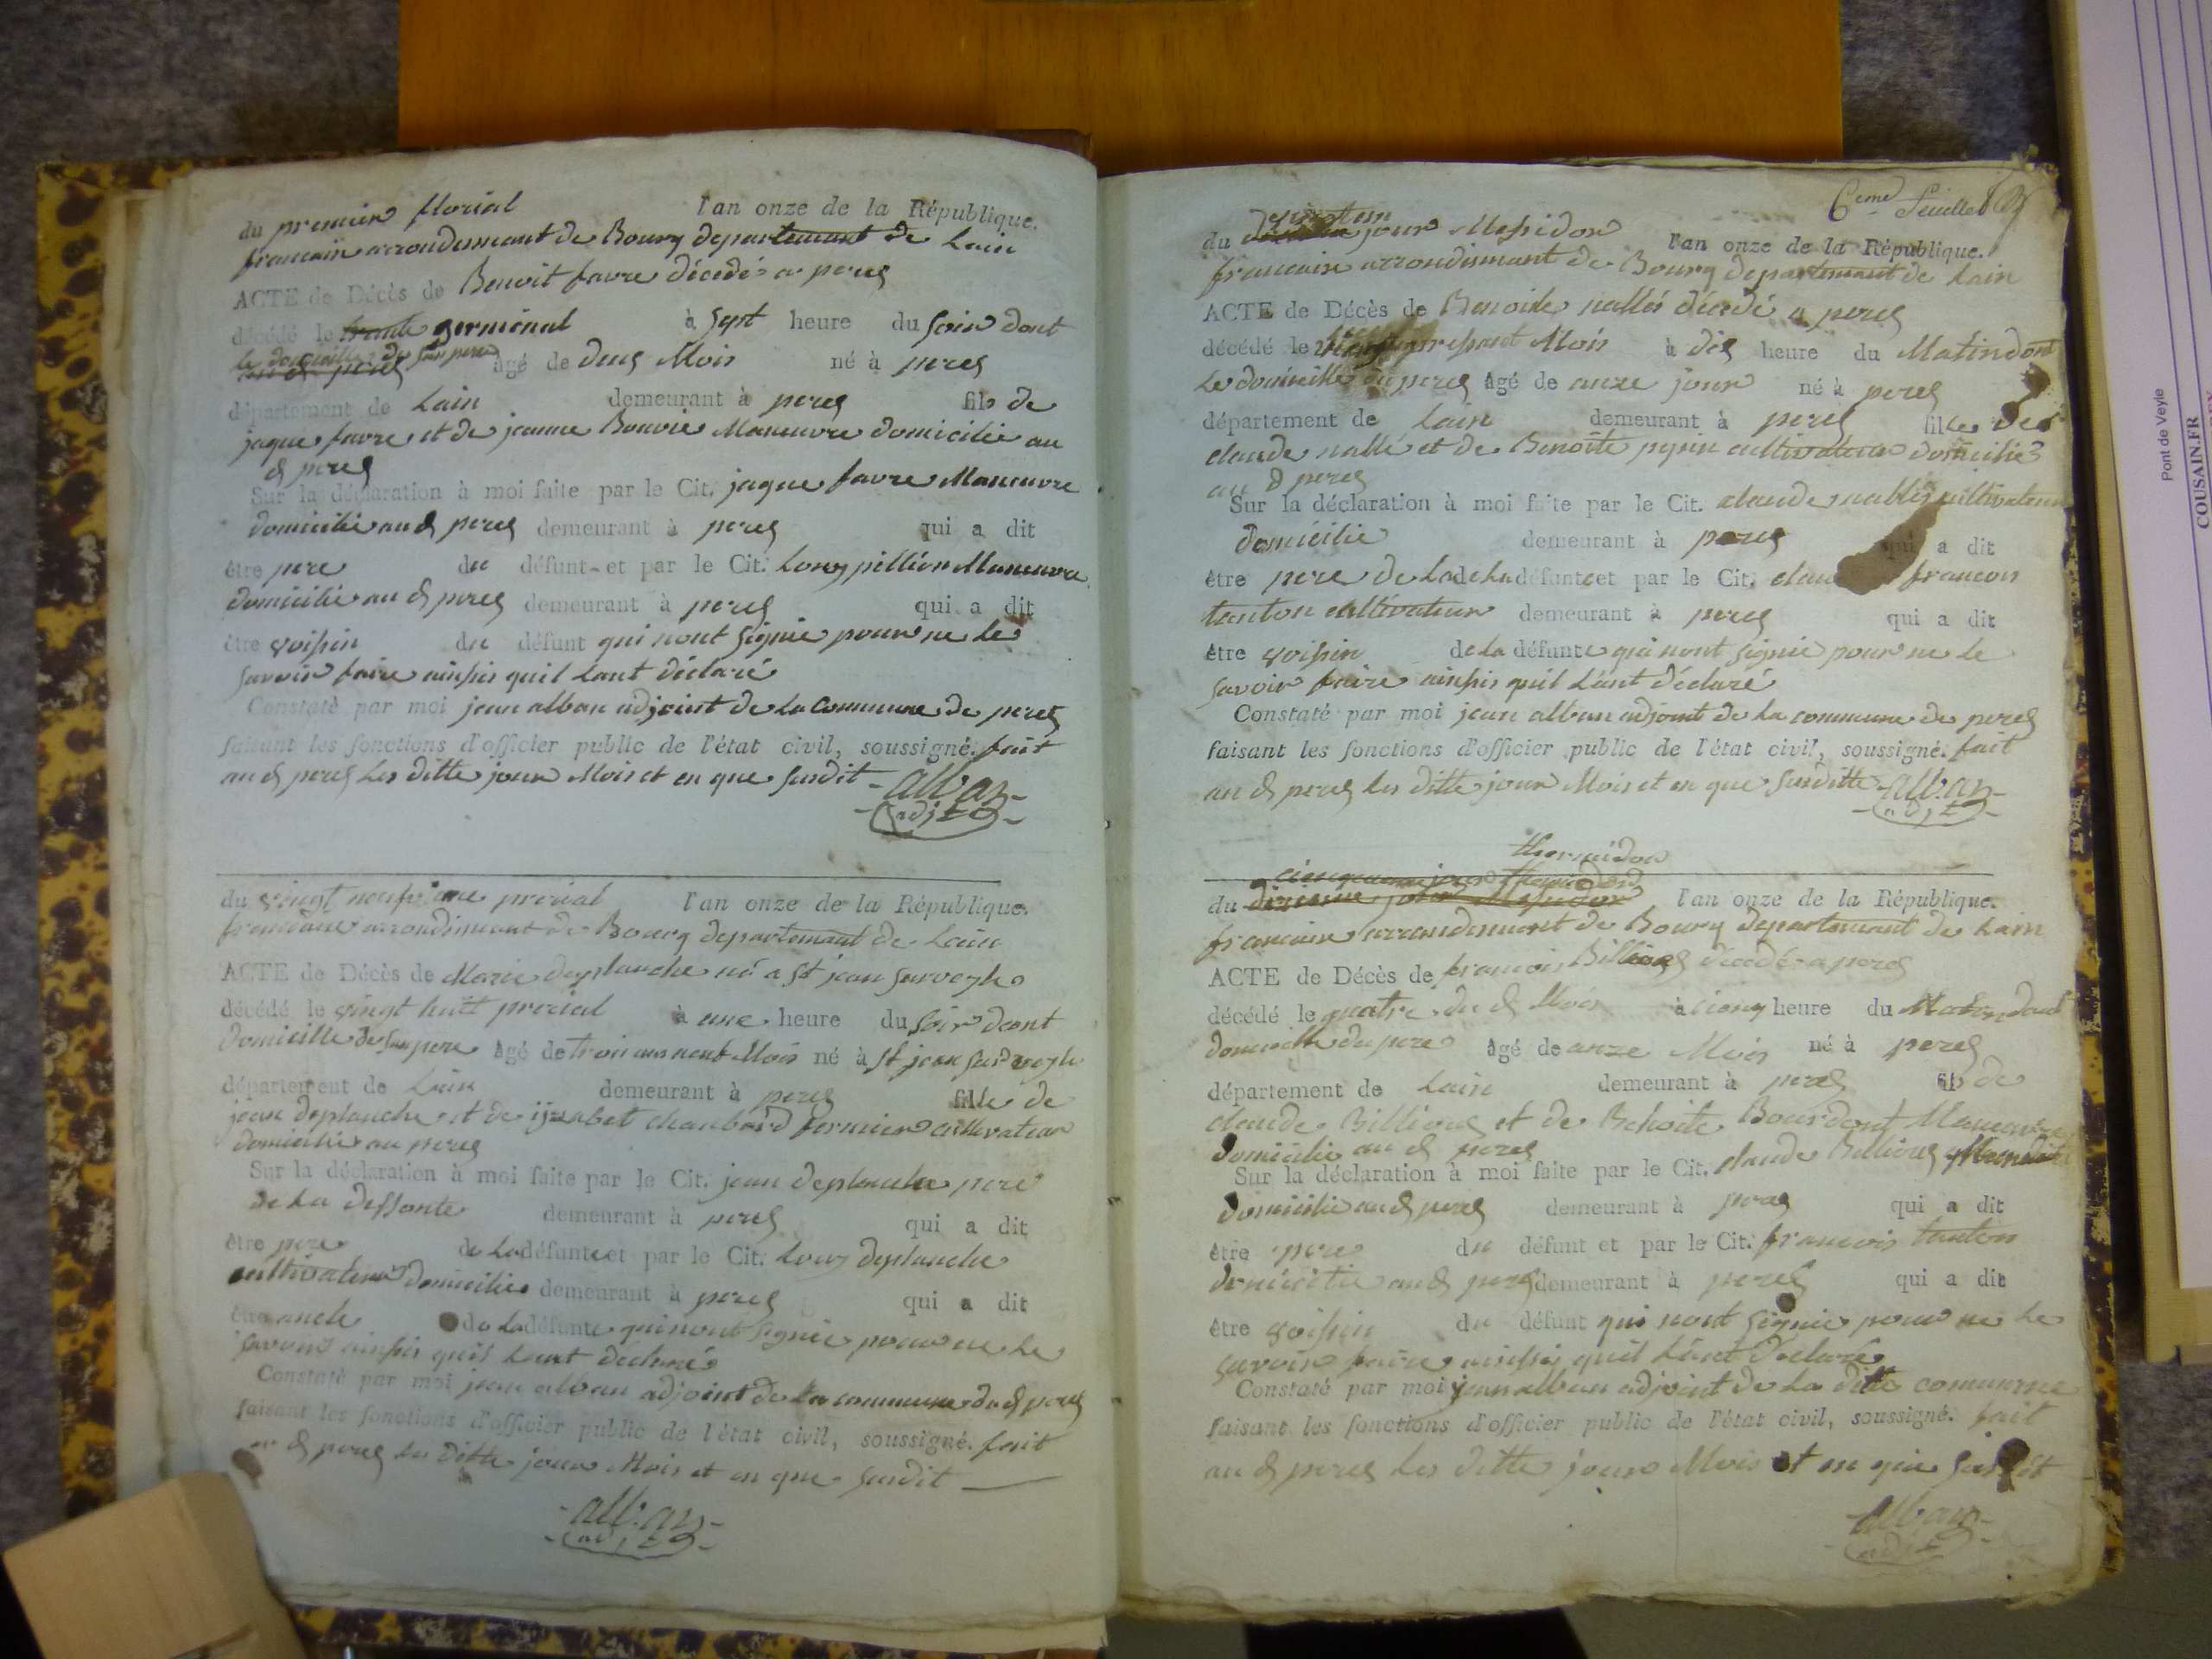 du premier florial l'an onze de la République.
francaise arrondissmant de Bourg departemant de Lain
ACTE de Décès de Benoit favre décédé a perex
décédé le germinal à sept heure du soir dont
le domicille de son pere âgé de deux Mois né à perex
département de Lain demeurant à perex fils de
jaque favre et de jeanne Bouvié Maneuvre domicilié au
d perex
Sur la déclaration à moi faite par le Cit. jaque favre Maneuvre
domicilié au d perex demeurant à perex qui a dit
être pere du défunt et par le Cit. Louy pillion Maneuvre
domicilié au d perex demeurant à perex qui a dit
être voisin du défunt qui nont signié pour ne le
savoir faire ainsis quil lont déclaré
Constaté par moi jean alban adjoint de la Commune de perex
faisant les fonctions d'officier public de l'état civil, soussigné. fait
au d perex les ditte jour Mois et en que surdit alban
adjt
du vingt neufieme prerial l'an onze de la République.
francaise arrondismant de Bourg departemant de Lain
ACTE de Décès de Marie deplanche né a St jean surveyle
décédé le vingt huit prerial à une heure du soir dont
domicille de son pere âgé de trois ans neuf Mois né à St jean sur veyle
département de Lain demeurant à perex fille de
jean deplanche et de izabet chanbard fermier cultivateur
domicilié au perex
Sur la déclaration à moi faite par le Cit. jean deplanche pere
de la deffonte demeurant à perex qui a dit
être pere de la défunte et par le Cit. Louy deplanche
cultivateur domicilié demeurant à perex qui a dit
être oncle de la défunte qui nont signié pour ne le
savoir ainsis quil lont déclaré
Constaté par moi jean alban adjoint de la commune du d perex
faisant les fonctions d'officier public de l'état civil, soussigné. fait
au d perex les ditte jour Mois et en que surdit
alban
adjt
6eme feuillet
du jour Mesidor l'an onze de la République.
francaise arrondismant de Bourg departemant de Lain
ACTE de Décès de Benoite nallés décédé a perex
décédé le presant Mois à dix heure du Matin dont
le domicille du perex âgé de onze jour né à perex
département de Lain demeurant à perex fille de
claude nallé et de Benoite pepin cultivateur domicilié
au d perex
Sur la déclaration à moi faite par le Cit. claude nallés cultivateur
domicilié demeurant à perex qui a dit
être pere de la de la défunte et par le Cit. francois
tanton cultivateur demeurant à perex qui a dit
être voisin de la défunte qui nont signié pour ne le
savoir faire ainsis quil lont déclaré
Constaté par moi jean alban adjoint de la commune de perex
faisant les fonctions d'officier public de l'état civil, soussigné. fait
au d perex les ditte jour Mois et en que surditte alban
adjt
thermidor
cienquieme jour thermidor
du dixieme jour Mesidor l'an onze de la République.
francaise arrondismant de Bourg departemant de Lain
ACTE de Décès de francois Billioux décédé a perex
décédé le quatre du d Mois à cienq heure du Matin dont
domicille du pere âgé de onze Mois né à perex
département de Lain demeurant à perex fils de
claude Billioux et de Benoite Bourdont Maneuvre
domicilié au d perex
Sur la déclaration à moi faite par le Cit. claude Billioux
domicilié au d perex demeurant à perex qui a dit
être pere du défunt et par le Cit. francois tanton
domicilié au d perex demeurant à perex qui a dit
être voisin du défunt qui nont signié pour ne le
savoir faire ainsis quil lont déclaré
Constaté par moi jean alban adjoint de la ditte comunne
faisant les fonctions d'officier public de l'état civil, soussigné. fait
au d perex les ditte jour Mois et en que surdit
alban
adjt
Pont de Veyle
COUSAIN.FR